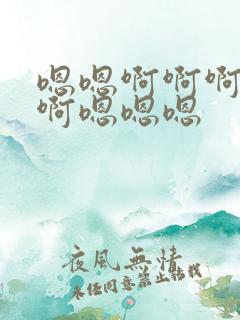 嗯嗯啊啊啊
啊嗯嗯嗯
夜風無情
未经同意禁止转载